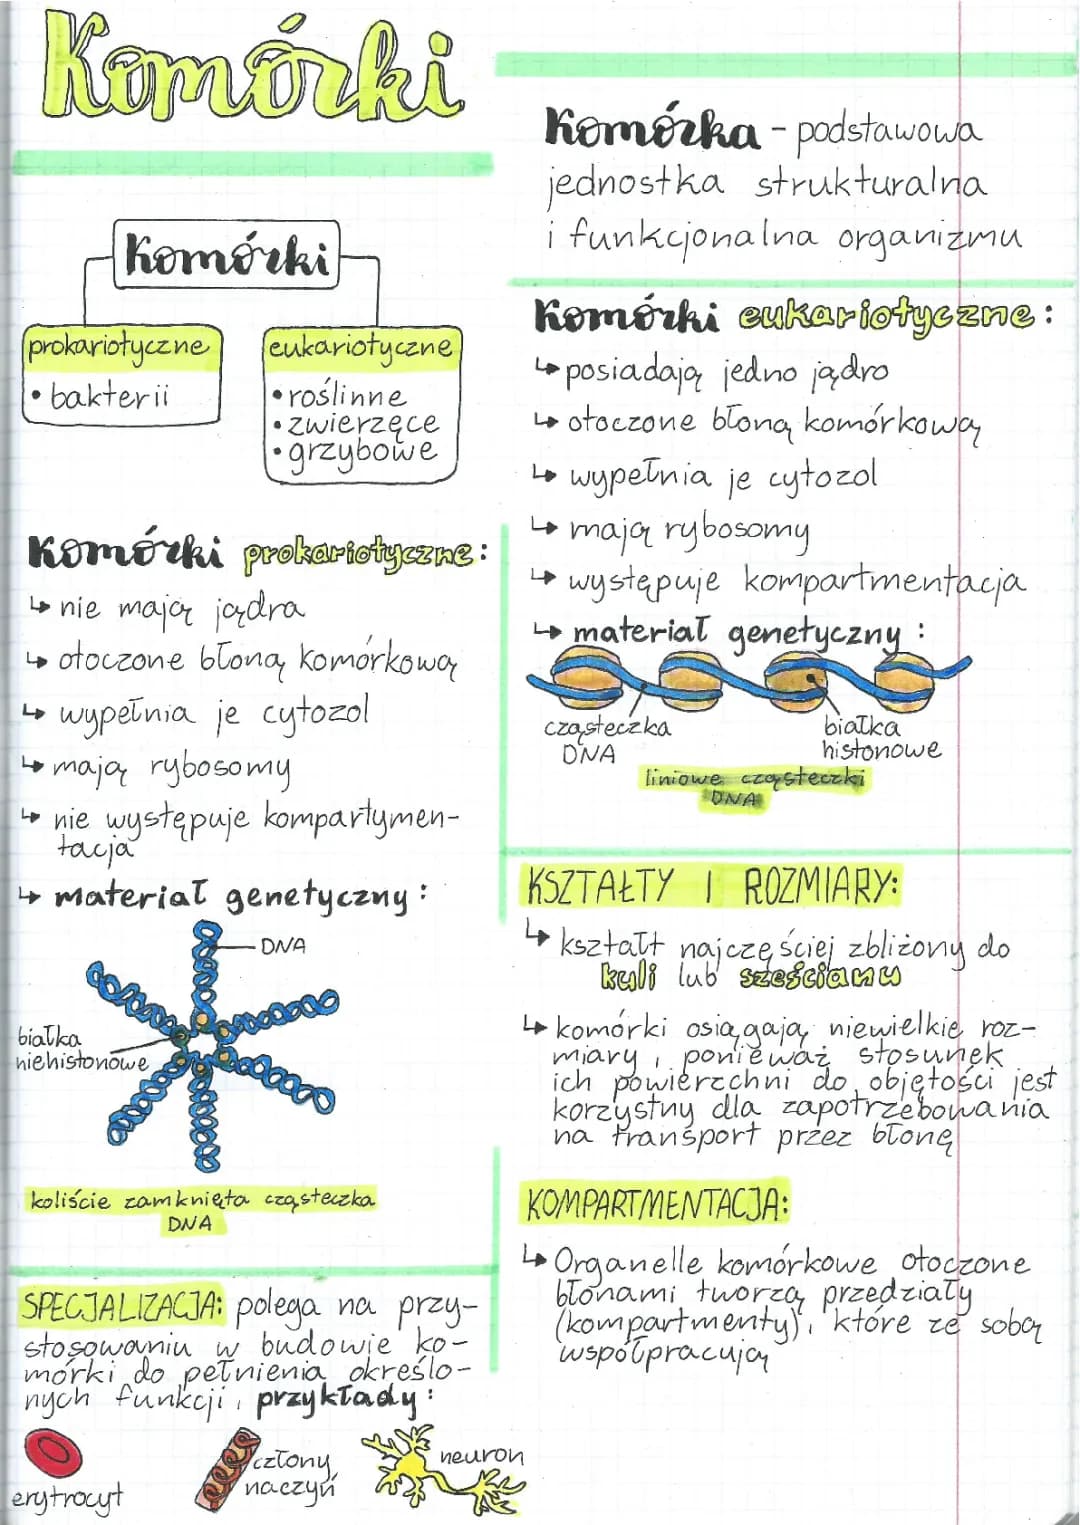 Komórki
Komórki
prokariotyczne
• bakterii
eukariotyczne
• roślinne
• zwierzęce
• grzybowe
Komórki prokariotyczne:
↳ nie mają jądra
↳ otoczone błoną komórkową
↳ wypełnia je cytozol
↳ mają rybosomy
↳ nie występuje kompartymen-
tacja
↳ materiał genetyczny:
DNA
białka
niehistonowe
koliście zamknięta cząsteczka
DNA
SPECJALIZACJA: polega na przy-
stosowaniu w budowie ko-
mórki do pełnienia określo-
nych funkcji, przykłady:
erytrocyt
człony
naczyń
neuron
Komórka - podstawowa
jednostka strukturalna
i funkcjonalna organizmu
Komórki eukariotyczne:
↳ posiadają jedno jądro
↳ otoczone błoną komórkową
↳ wypełnia je cytozol
↳ mają rybosomy
↳ występuje kompartmentacja
↳ materiał genetyczny:
cząsteczka
DNA
białka
histonowe
liniowe cząsteczki
DNA
KSZTAŁTY I ROZMIARY:
↳ kształt najczęściej zbliżony do
kuli lub sześcianu
↳ komórki osiągają niewielkie roz-
miary, ponieważ stosunek
ich powierzchni do objętości jest
korzystny dla zapotrzebowania
na transport przez błonę
KOMPARTMENTACJA:
↳ Organelle komórkowe otoczone
błonami tworzą przedziały
(kompartmenty), które ze sobą
współpracują